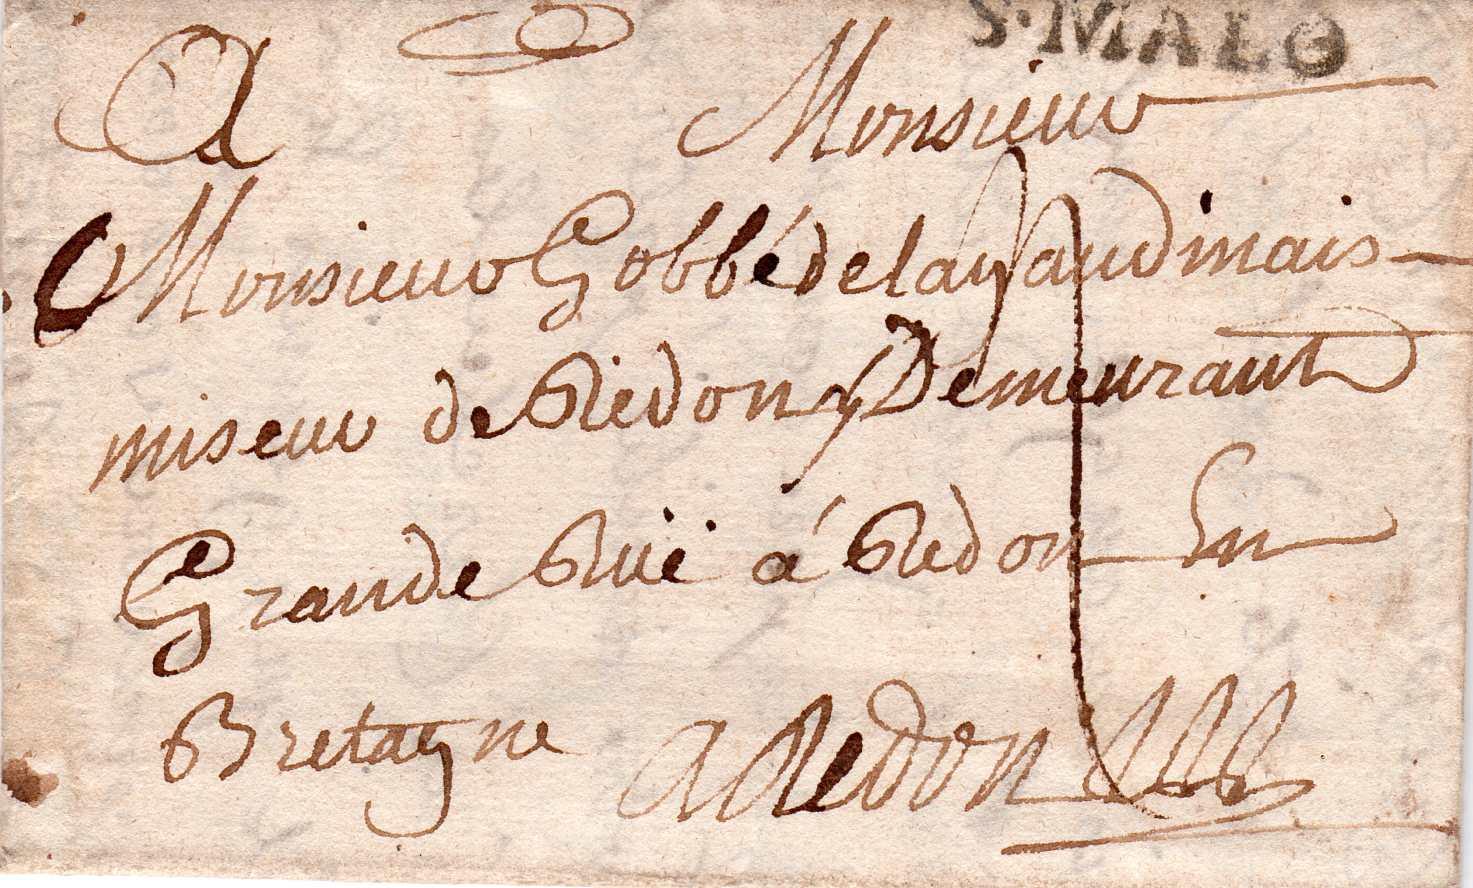 S·MALO
A Monsieur
Monsieur Gobbé de la Gaudinais
miseur de Redon Demeurant
Grande Ruë á Redon En
Bretagne A Redon